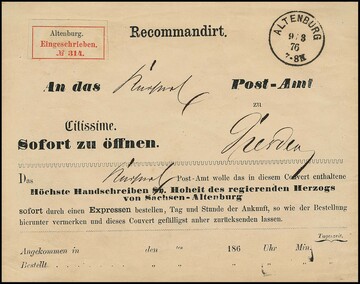 Altenburg.
Eingeschrieben.
№ 314.
Recommandirt.
ALTENBURG
9 3
76
7-8N
An das
Post-Amt
zu
Citissime.
Dresden
Sofort zu öffnen.
Das Post-Amt wolle das in diesem Couvert enthaltene
Höchste Handschreiben Sr. Hoheit des regierenden Herzogs
von Sachsen-Altenburg
sofort durch einen Expressen bestellen, Tag und Stunde der Ankunft, so wie der Bestellung
hierunter vermerken und dieses Couvert gefälligst anher zurücksenden lassen.
Tageszeit.
Angekommen in den ten 186 Uhr Min.
Bestellt. " " " " "